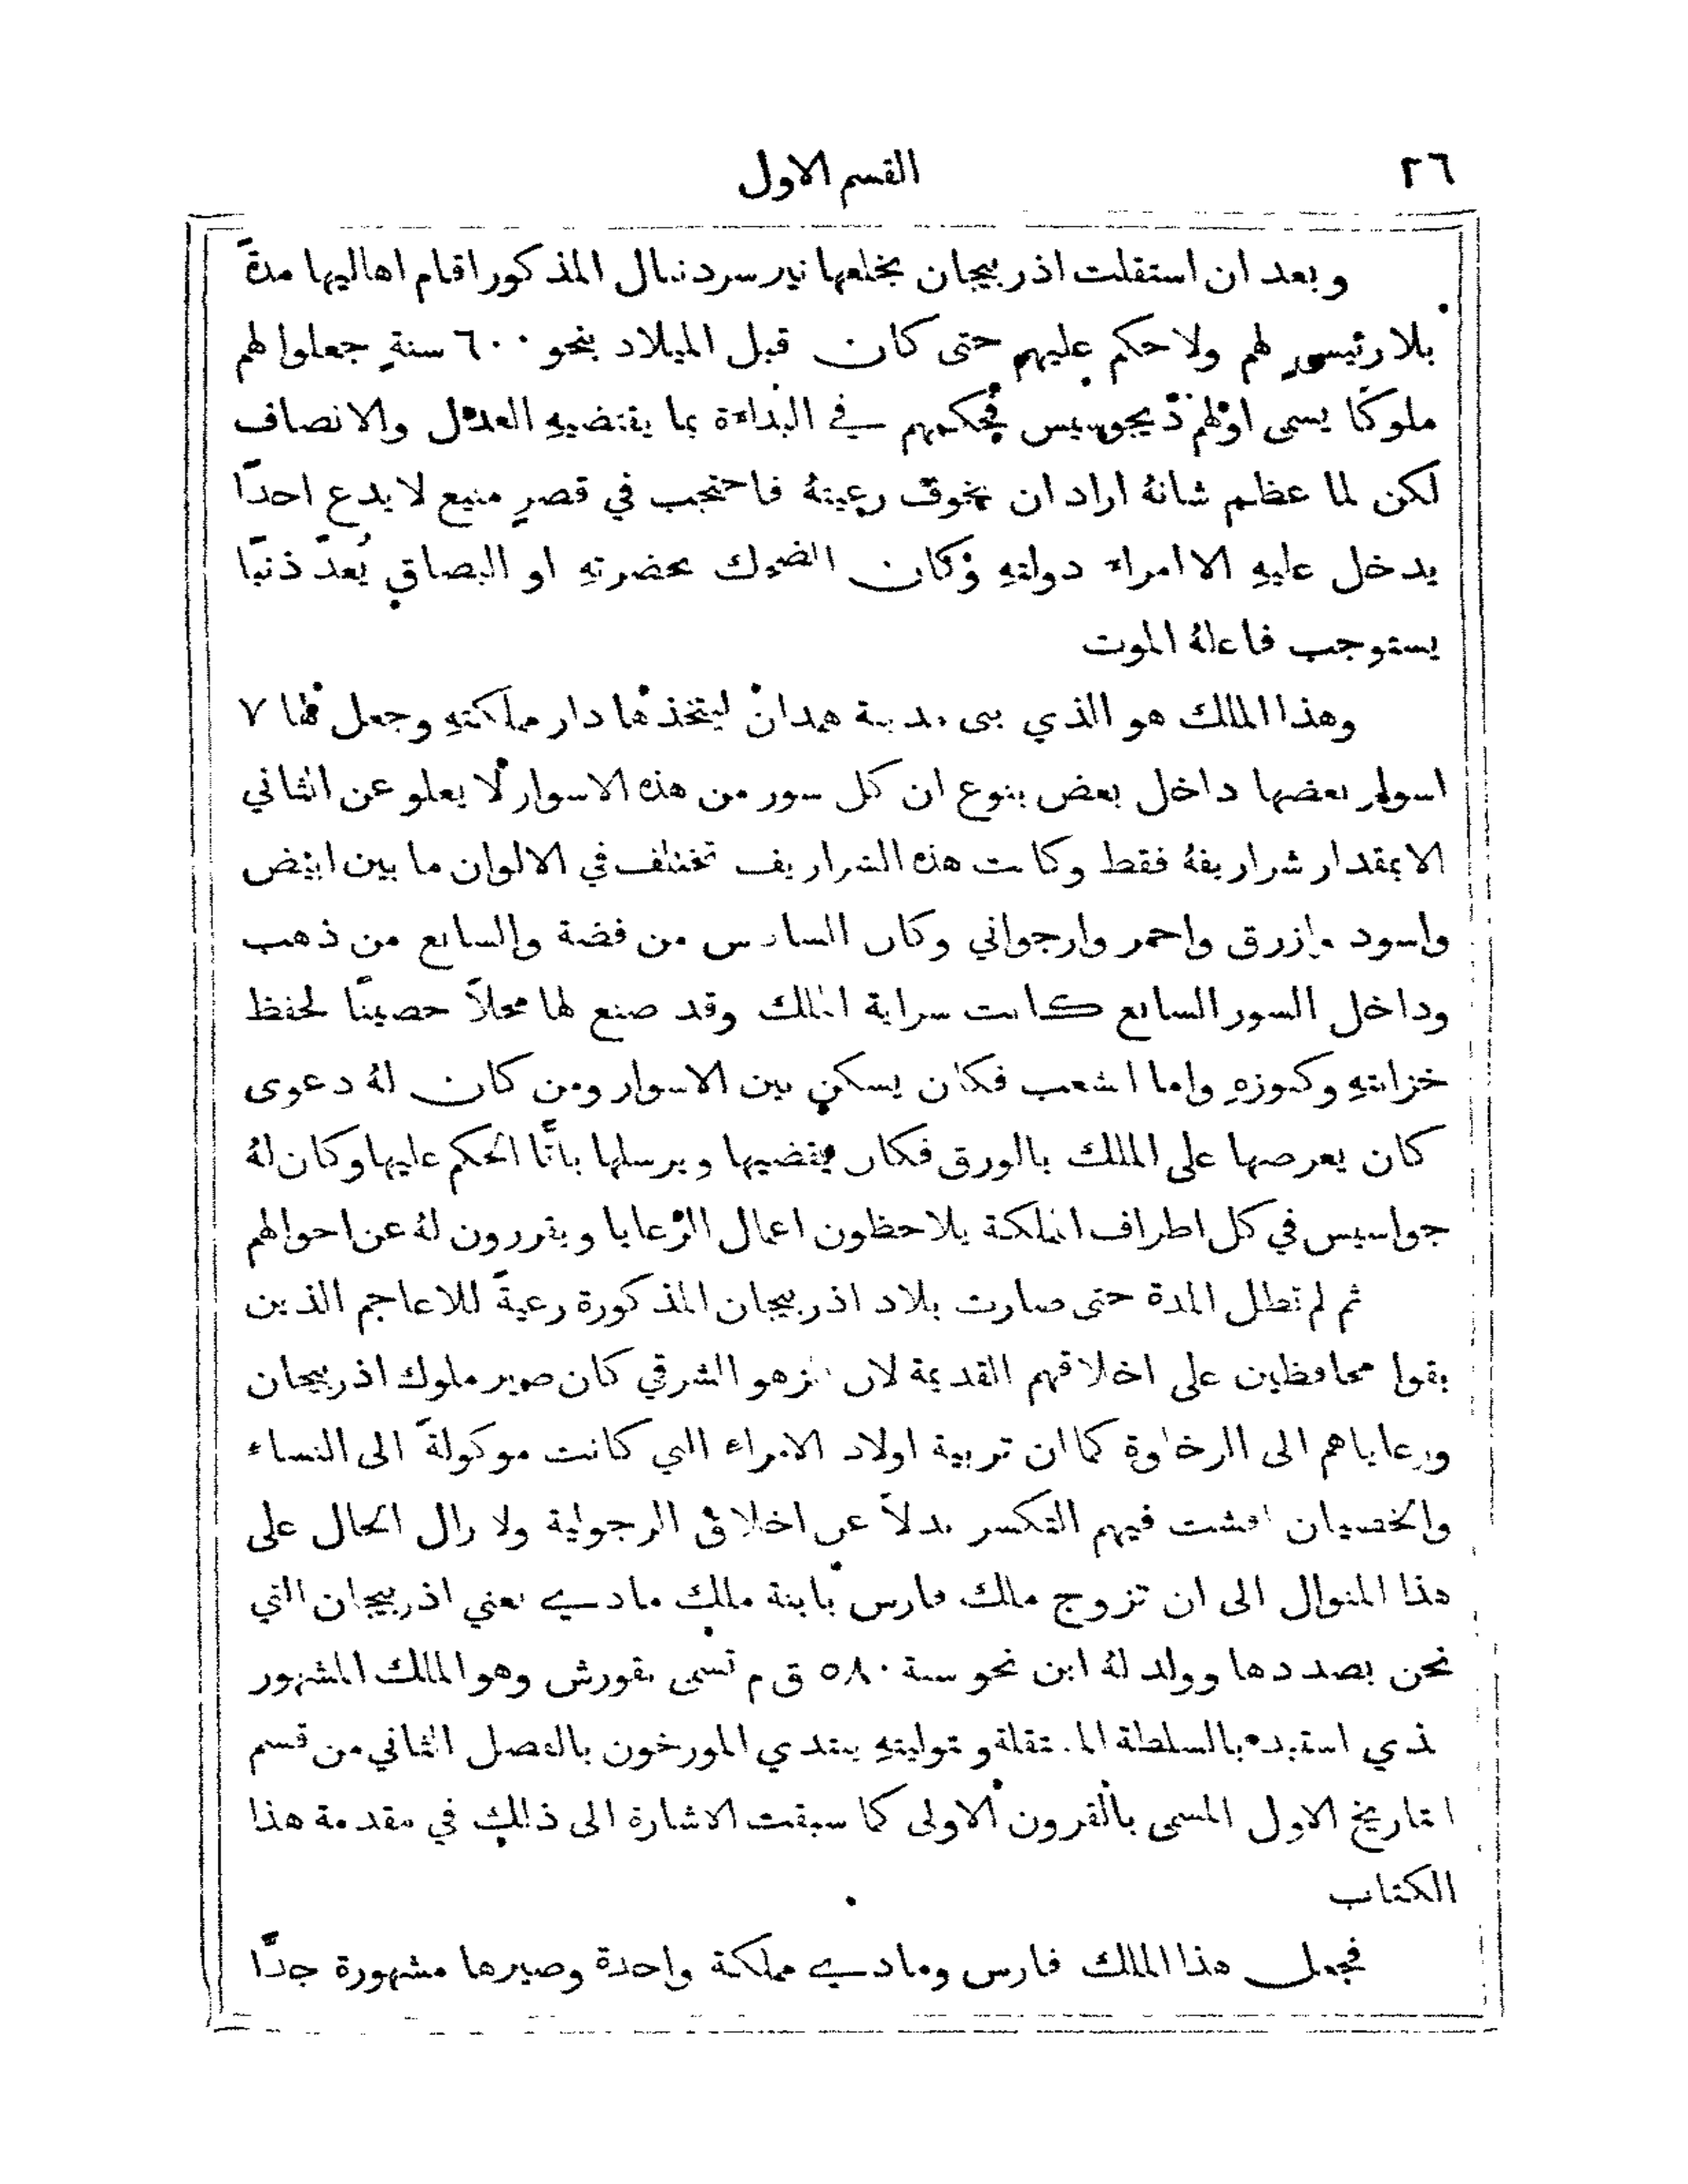 ٢٦
القسم الاول
وبعد ان استقلت اذربيجان بخلعها نير سردنبال المذكور اقام اهاليها مدةً
بلا رئيس لهم ولا حكم عليهم حتى كان قبل الميلاد بنحو ٦٠٠ سنةٍ جعلوا لهم
ملوكًا يسمى اولهم ذيجوسيس فحكمهم في البداءة بما يقتضيهِ العدل والانصاف
لكن لما عظم شانهُ اراد ان يخوف رعيتهُ فاحتجب في قصرٍ منيع لا يدع احدًا
يدخل عليهِ الا امراء دولتهِ وكان الضحك بحضرتهِ او البصاق يُعدّ ذنبًا
يستوجب فاعلهُ الموت
وهذا الملك هو الذي بنى مدينة همدان ليتخذها دار مملكتهِ وجعل لها ٧
اسوار بعضها داخل بعض بنوع ان كل سور من هذه الاسوار لا يعلو عن الثاني
الا بمقدار شراريفهُ فقط وكانت هذه الشراريف تختلف في الالوان ما بين ابيض
واسود وازرق واحمر وارجواني وكان السادس من فضة والسابع من ذهب
وداخل السور السابع كانت سراية الملك وقد صنع لها محلاً حصينًا لحفظ
خزانتهِ وكنوزهِ واما الشعب فكان يسكن بين الاسوار ومن كان لهُ دعوى
كان يعرضها على الملك بالورق فكان يقضيها ويرسلها باتًّا الحكم عليها وكان لهُ
جواسيس في كل اطراف المملكة يلاحظون اعمال الرعايا ويقررون لهُ عن احوالهم
ثم لم تطل المدة حتى صارت بلاد اذربيجان المذكورة رعيةً للاعاجم الذين
بقوا محافظين على اخلاقهم القديمة لان الزهو الشرقي كان صير ملوك اذربيجان
ورعاياهم الى الرخاوة كما ان تربية اولاد الامراء التي كانت موكولةً الى النساء
والخصيان افشت فيهم التكسر بدلاً عن اخلاق الرجولية ولا زال الحال على
هذا المنوال الى ان تزوج ملك فارس بابنة ملك مادي يعني اذربيجان التي
نحن بصددها وولد لهُ ابن نحو سنة ٥٨٠ ق م تسمى بقورش وهو الملك المشهور
لذي استبد بالسلطة المستقلة وتوليتهِ يبتدي المورخون بالفصل الثاني من قسم
التاريخ الاول المسمى بالقرون الاولى كما سبقت الاشارة الى ذلك في مقدمة هذا
الكتاب
فجعل هذا الملك فارس ومادي مملكة واحدة وصيرها مشهورة جدًّا